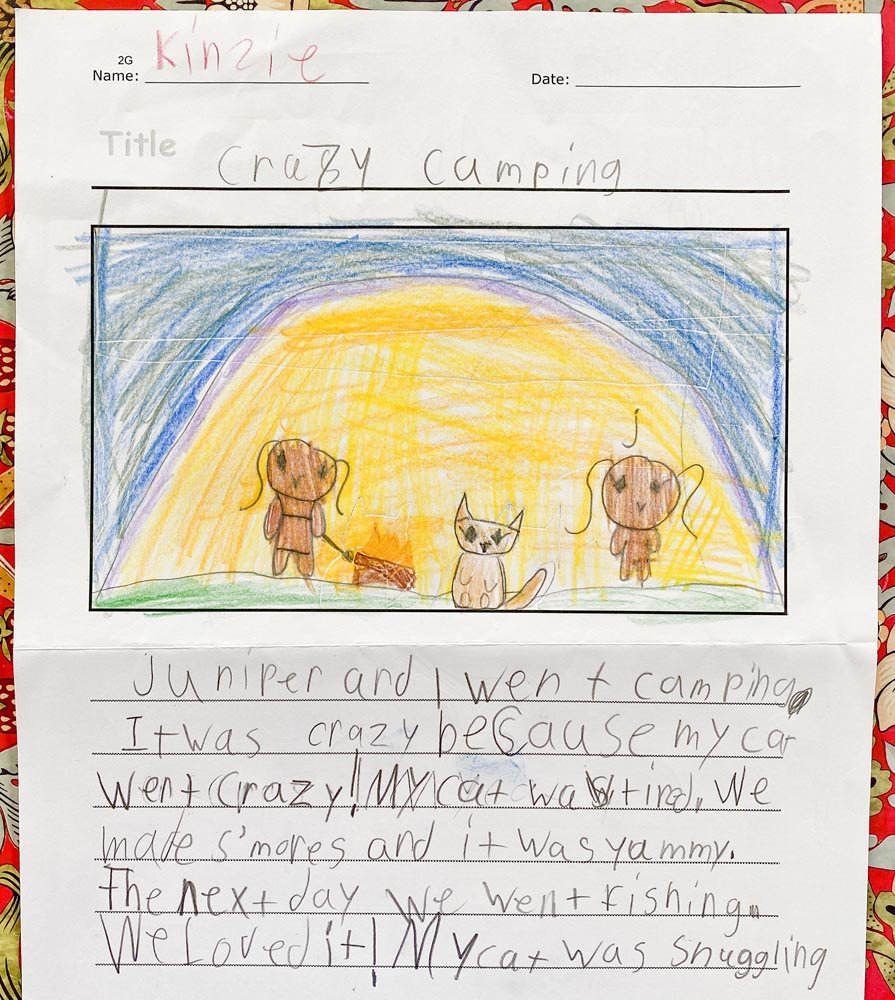 2G
Name: Kinzie
Date:
Title Crazy Camping
J
Juniper and I went camping.
It was crazy because my cat
went crazy! My cat was tired. We
made s'mores and it was yammy.
The next day we went fishing.
We loved it! My cat was snuggling